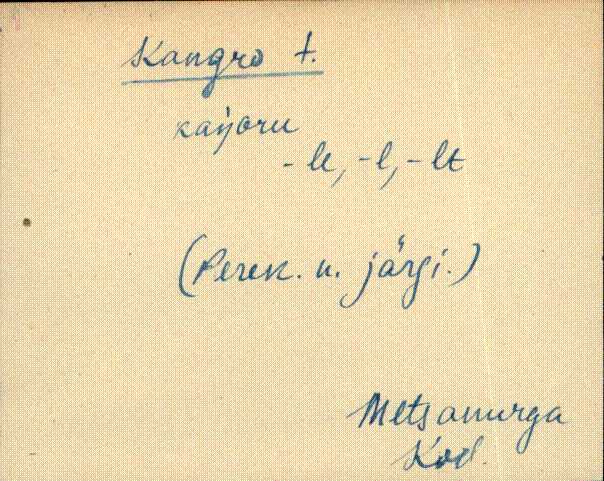 Kangro t.
kaŋoru
-le, -l, -lt
(Perek. n. järgi.)
Metsanurga
Kod.